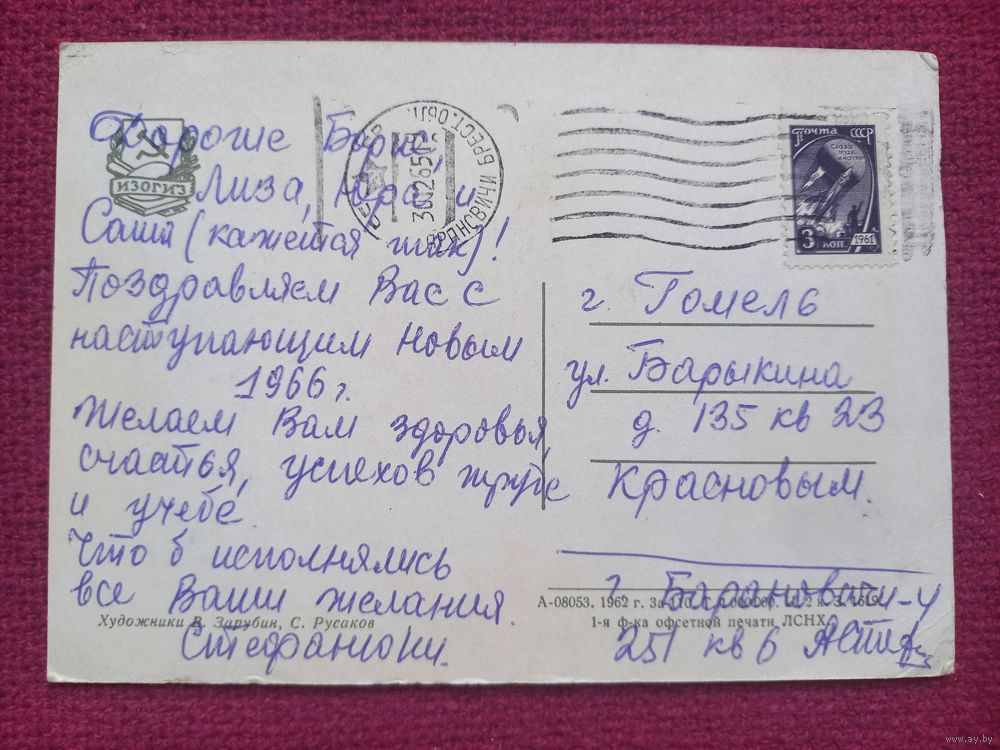 Дорогие Боря,
Лиза, Юра и
Саша (кажется так)!
Поздравляем Вас с
наступающим Новым
1966 г.
Желаем Вам здоровья,
счастья, успехов труде
и учебе.
Что б исполнялись
все Ваши желания.
Стефанюки.
ИЗОГИЗ
Художники В. Зарубин, С. Русаков
БАРАНОВИЧИ БРЕСТ. ОБЛ.
301265
ПОЧТА СССР
СЛАВА ТРУДУ И НАУКЕ
3 КОП
1961
г. Гомель
ул. Барыкина
д. 135 кв 23
Красновым.
А-08053. 1962 г. За 110.
1-я ф-ка офсетной печати ЛСНХ
г. Барановичи-4
251 кв 6
www.ay.by